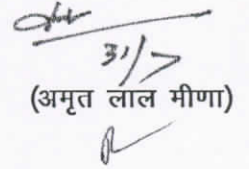 31/7
(अमृत लाल मीणा)